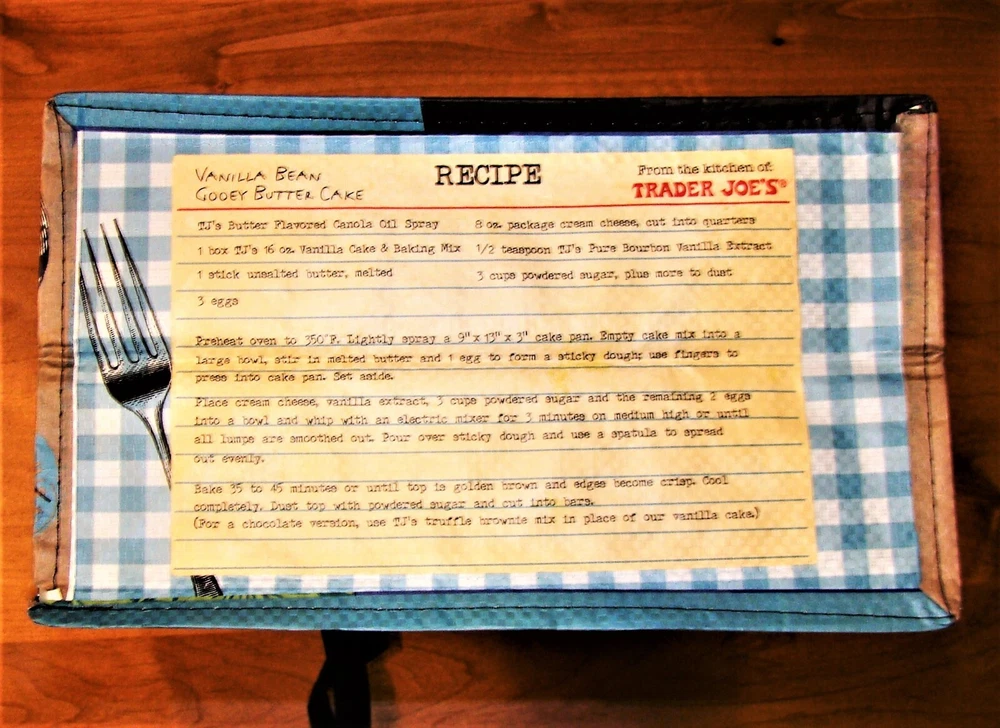 VANILLA BEAN
GOOEY BUTTER CAKE
RECIPE
From the kitchen of:
TRADER JOE'S®
TJ's Butter Flavored Canola Oil Spray
1 box TJ's 16 oz. Vanilla Cake & Baking Mix
1 stick unsalted butter, melted
3 eggs
8 oz. package cream cheese, cut into quarters
1/2 teaspoon TJ's Pure Bourbon Vanilla Extract
3 cups powdered sugar, plus more to dust
Preheat oven to 350°F. Lightly spray a 9" x 13" x 3" cake pan. Empty cake mix into a
large bowl, stir in melted butter and 1 egg to form a sticky dough; use fingers to
press into cake pan. Set aside.
Place cream cheese, vanilla extract, 3 cups powdered sugar and the remaining 2 eggs
into a bowl and whip with an electric mixer for 3 minutes on medium high or until
all lumps are smoothed out. Pour over sticky dough and use a spatula to spread
out evenly.
Bake 35 to 45 minutes or until top is golden brown and edges become crisp. Cool
completely. Dust top with powdered sugar and cut into bars.
(For a chocolate version, use TJ's truffle brownie mix in place of our vanilla cake.)